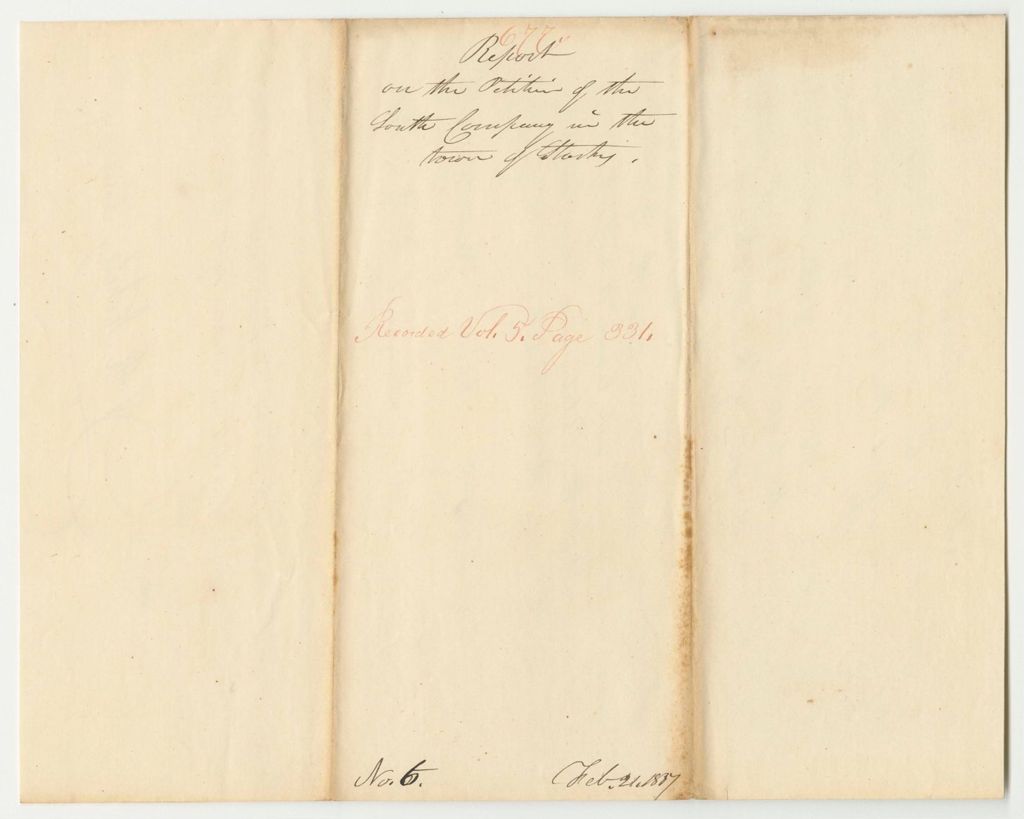 677
Report
on the Petition of the
South Company in the
town of Starks.
Recorded Vol. 5. Page 331.
No. 6.
Feb. 21. 1837